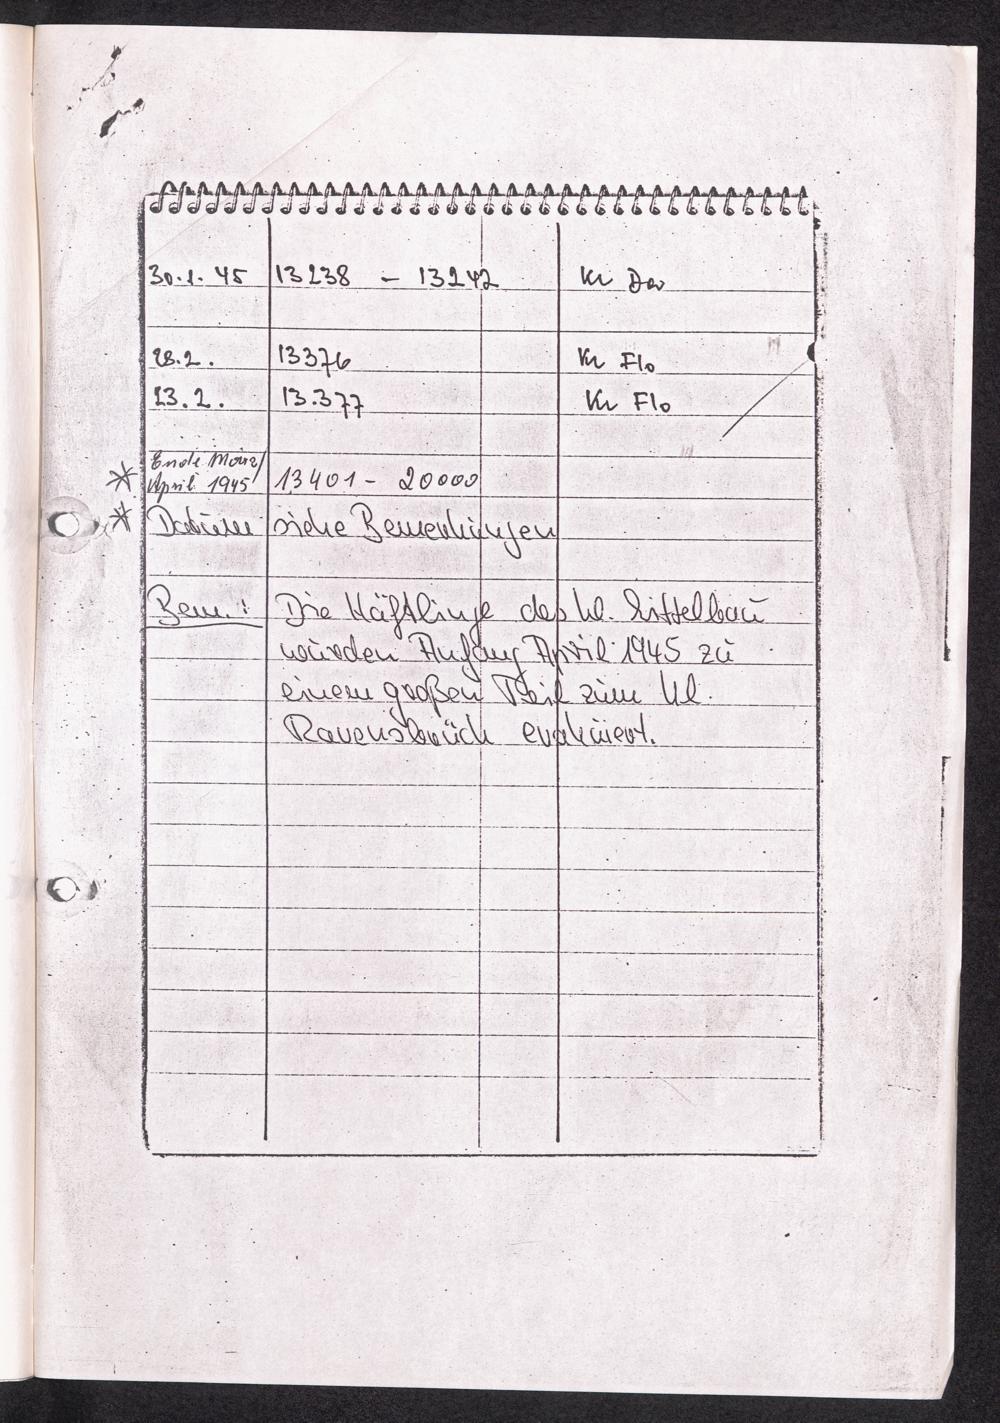 30.1.45 13238 - 13242 Kr Da
28.2. 13376 Kr Flo
23.2. 13.377 Kr Flo
* Ende März/
April 1945 13401 - 20000
* Datum siehe Bemerkungen
Bem.: Die Häftlinge des Kl. Mittelbau
wurden Anfang April 1945 zu
einem großen Teil zum Kl.
Ravensbrück evakuiert.